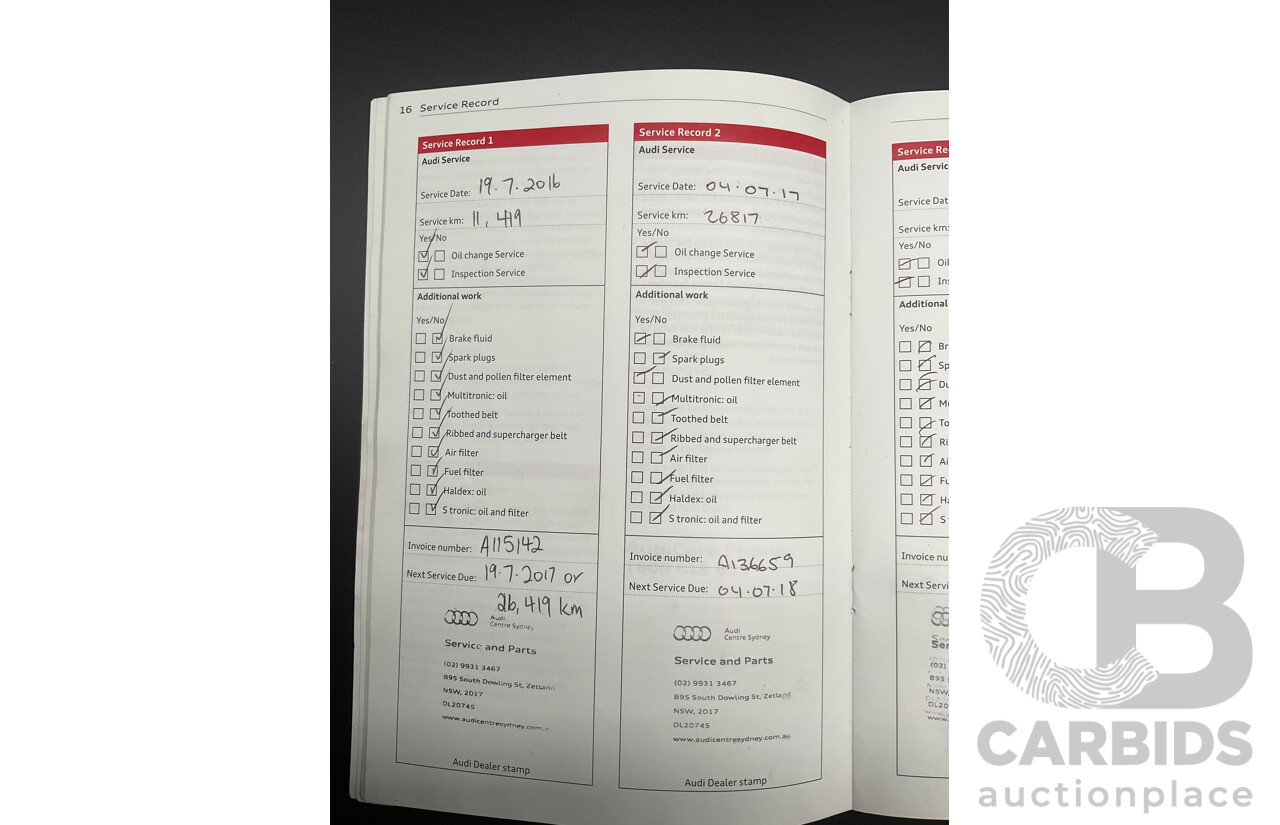 16 Service Record
Service Record 1
Audi Service
Service Date: 19.7.2016
Service km: 11,419
Yes/No
Oil change Service
Inspection Service
Additional work
Yes/No
Brake fluid
Spark plugs
Dust and pollen filter element
Multitronic: oil
Toothed belt
Ribbed and supercharger belt
Air filter
Fuel filter
Haldex: oil
S tronic: oil and filter
Invoice number: A115142
Next Service Due: 19.7.2017 or
26,419 km
Audi
Centre Sydney
Service and Parts
(02) 9931 3467
895 South Dowling St, Zetland
NSW, 2017
DL20745
www.audicentresydney.com.a
Audi Dealer stamp
Service Record 2
Audi Service
Service Date: 04.07.17
Service km: 26817
Yes/No
Oil change Service
Inspection Service
Additional work
Yes/No
Brake fluid
Spark plugs
Dust and pollen filter element
Multitronic: oil
Toothed belt
Ribbed and supercharger belt
Air filter
Fuel filter
Haldex: oil
S tronic: oil and filter
Invoice number: A136659
Next Service Due: 04.07.18
Audi
Centre Sydney
Service and Parts
(02) 9931 3467
895 South Dowling St, Zetland
NSW, 2017
DL20745
www.audicentresydney.com.au
Audi Dealer stamp
Service Re
Audi Servic
Service Dat
Service km:
Yes/No
Oil
Ins
Additional
Yes/No
Br
Sp
Du
Mu
To
Ri
Ai
Fu
Ha
S
Invoice nu
Next Servi
Ser
(02)
895
NSW,
DL20
www.
CB
CARBIDS
auctionplace